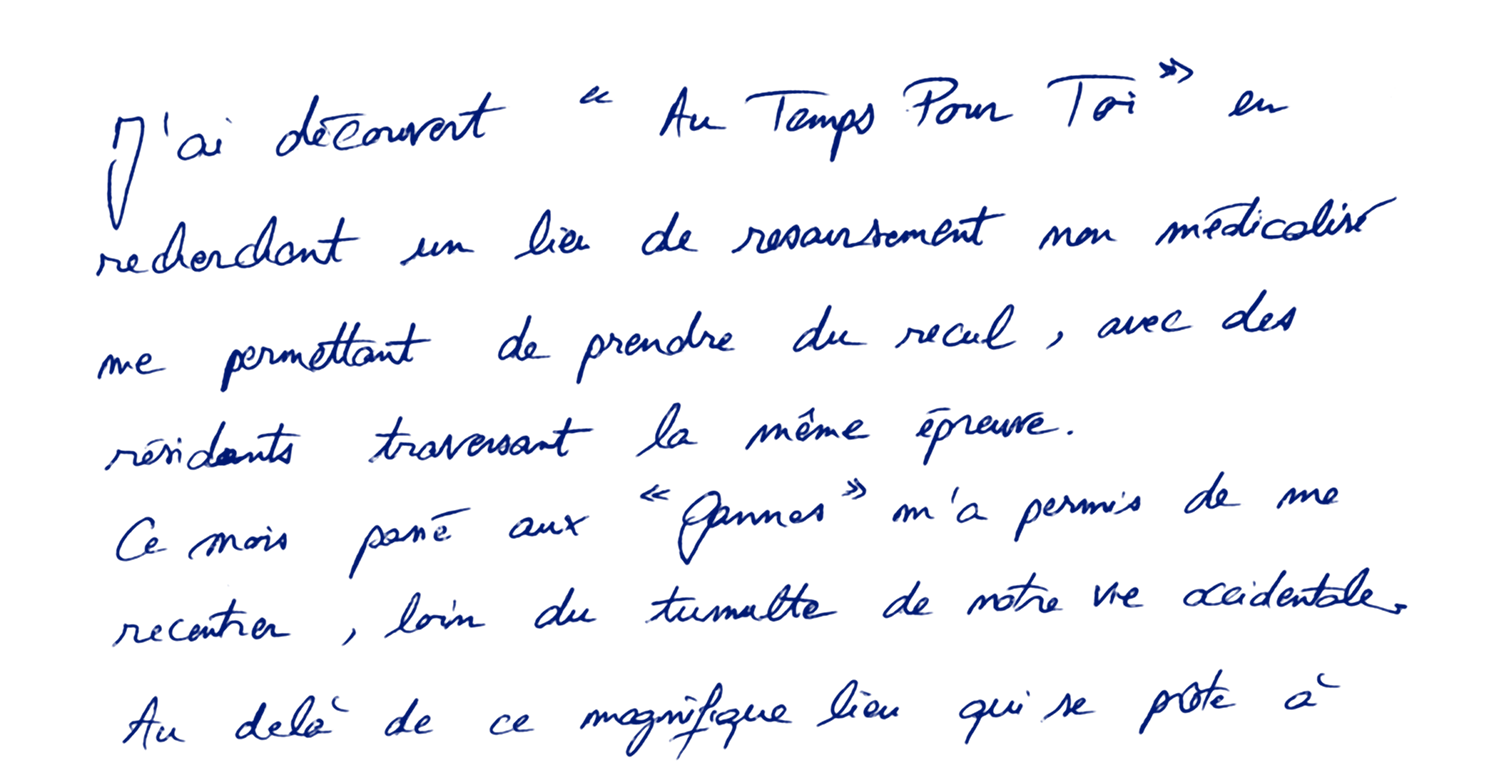 J'ai découvert « Au Temps Pour Toi » en
recherchant un lieu de ressourcement non médicalisé
me permettant de prendre du recul, avec des
résidants traversant la même épreuve.
Ce mois passé aux « Gannes » m'a permis de me
recentrer, loin du tumulte de notre vie occidentale.
Au delà de ce magnifique lieu qui se prête à